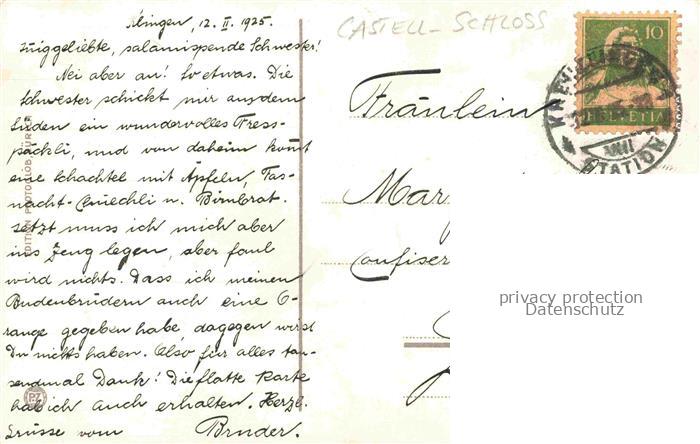 Illingen, 12. II. 1925.
Inniggeliebte, salamispende Schwester!
Nei aber au! So etwas. Die
Schwester schickt mir aus dem
Süden ein wundervolles Fress-
päckli, und von daheim kommt
eine Schachtel mit Äpfeln, Fas-
nacht-Chüechli u. Birnbrot.
Jetzt muss ich mich aber
ins Zeug legen, aber faul
wird nichts. Dass ich meinen
Budenbrüdern auch eine O-
range gegeben habe, dagegen wirst
Du nichts haben. Also, für alles tau-
sendmal Dank! Die flatte Karte
hab ich auch erhalten. Herzl.
Grüsse vom Bruder.
EDITION PHOTOGLOB, ZÜRICH
PZ
CASTELL-SCHLOSS
10
HELVETIA
STATION
VIII
Fräulein
Mar
onfiser
privacy protection
Datenschutz